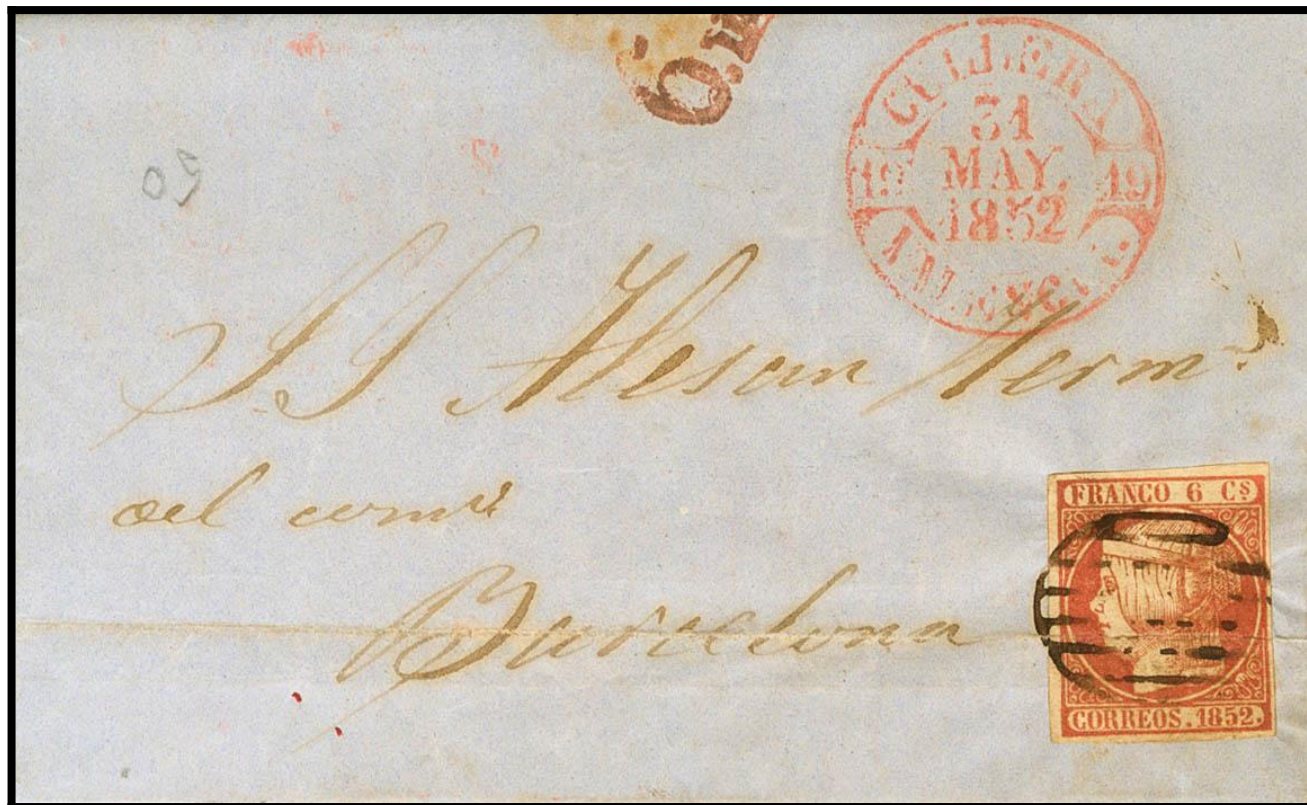 CULLERA
31
MAY.
1852
19 19
VALENCIA
50
S.S. Alesan Herm.ˢ
del comᵒ
Barcelona
FRANCO 6 Cˢ
CORREOS. 1852.